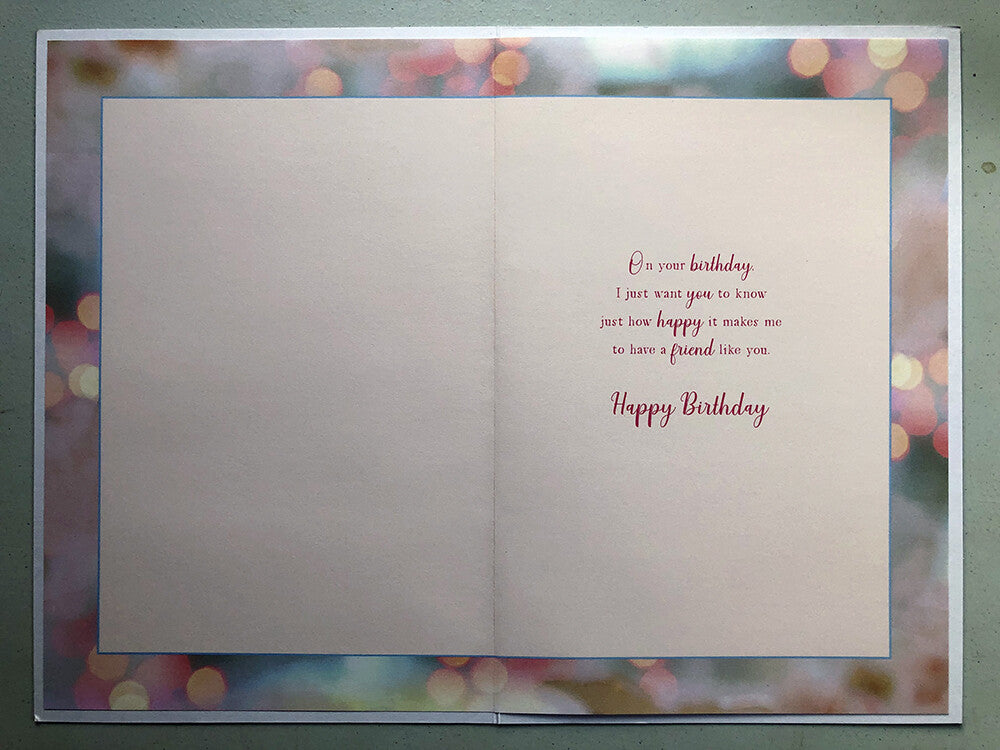 On your birthday,
I just want you to know
just how happy it makes me
to have a friend like you.
Happy Birthday